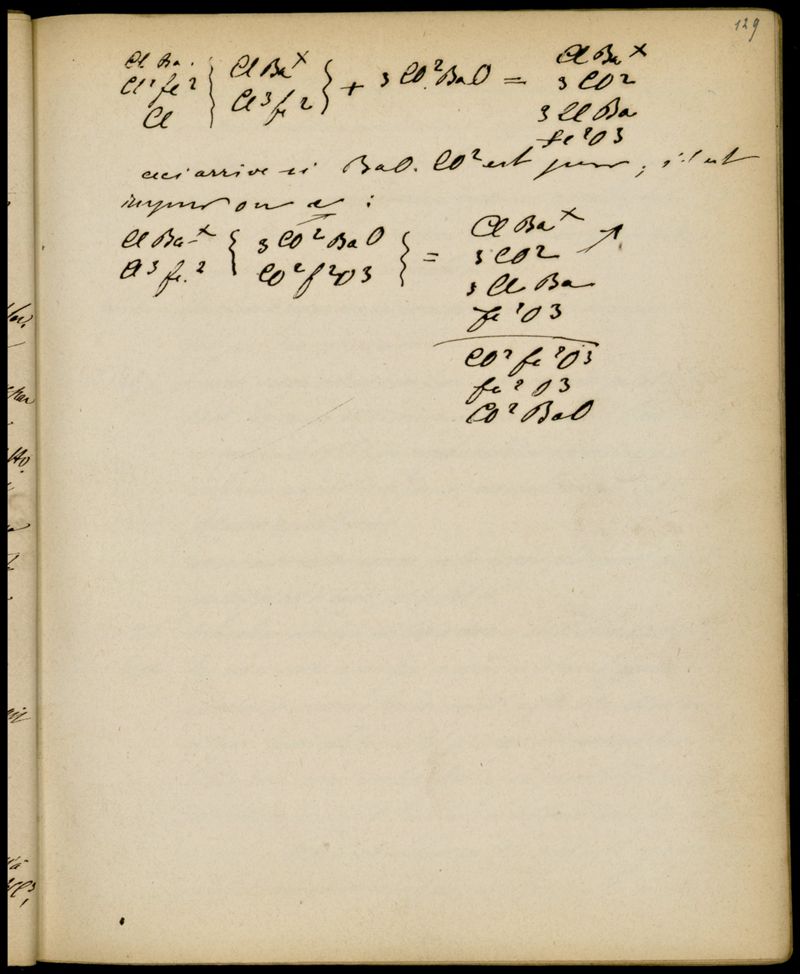 129
Cl Ba.
Cl² fe²
Cl
{ Cl Ba ×
Cl³ fe² } + 3 CO². BaO =
Cl Ba ×
3 CO²
3 Cl Ba
fe² O3
ceci arrive si BaO. CO² est pur ; s'il est
impur on a :
Cl Ba ×
Cl³ fe.² { 3 CO² BaO
CO² f² O3 } =
Cl Ba ×
3 CO²
3 Cl Ba
fe² O3
CO² fe² O3
fe² O3
CO² BaO